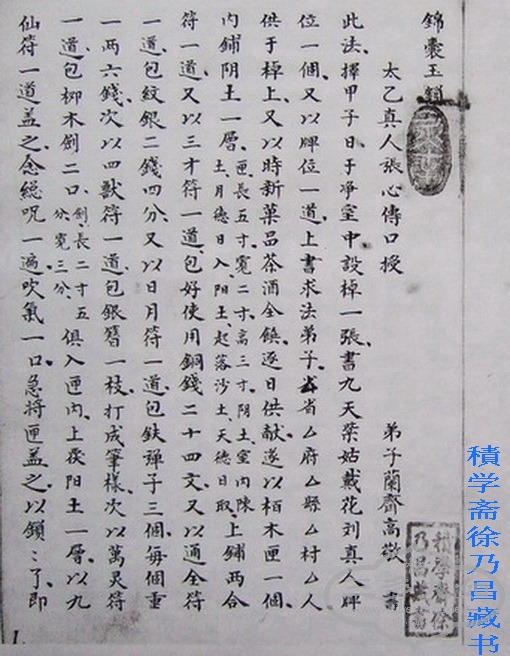 錦囊玉鎖
太乙真人張心傳口授 弟子蘭齋高敬 書
此法擇甲子日于净室中設棹一張書九天紫姑戴花刘真人牌
位一個又以牌位一道上書求法弟子厶省厶府厶縣厶村厶人
供于棹上又以時新菓品茶酒全饌逐日供献遂以栢木匣一個
内鋪阴土一層匣長五寸寬二寸高三寸阴土室内陳土月德日入阳土起落沙土天德日取上鋪两合
符一道又以三才符一道包好使用銅錢二十四文又以通全符
一道包紋銀二錢四分又以日月符一道包鉄彈子三個每個重
一两六錢次以四獸符一道包銀簪一枝打成筆樣次以萬灵符
一道包柳木劍二口劍長二寸五分寬三分俱入匣内上及阳土一層以九
仙符一道盖之念總咒一遍吹氣一口急将匣盖之以鎖〻了即
積學齋徐乃昌藏書
積学斋徐乃昌藏书
1